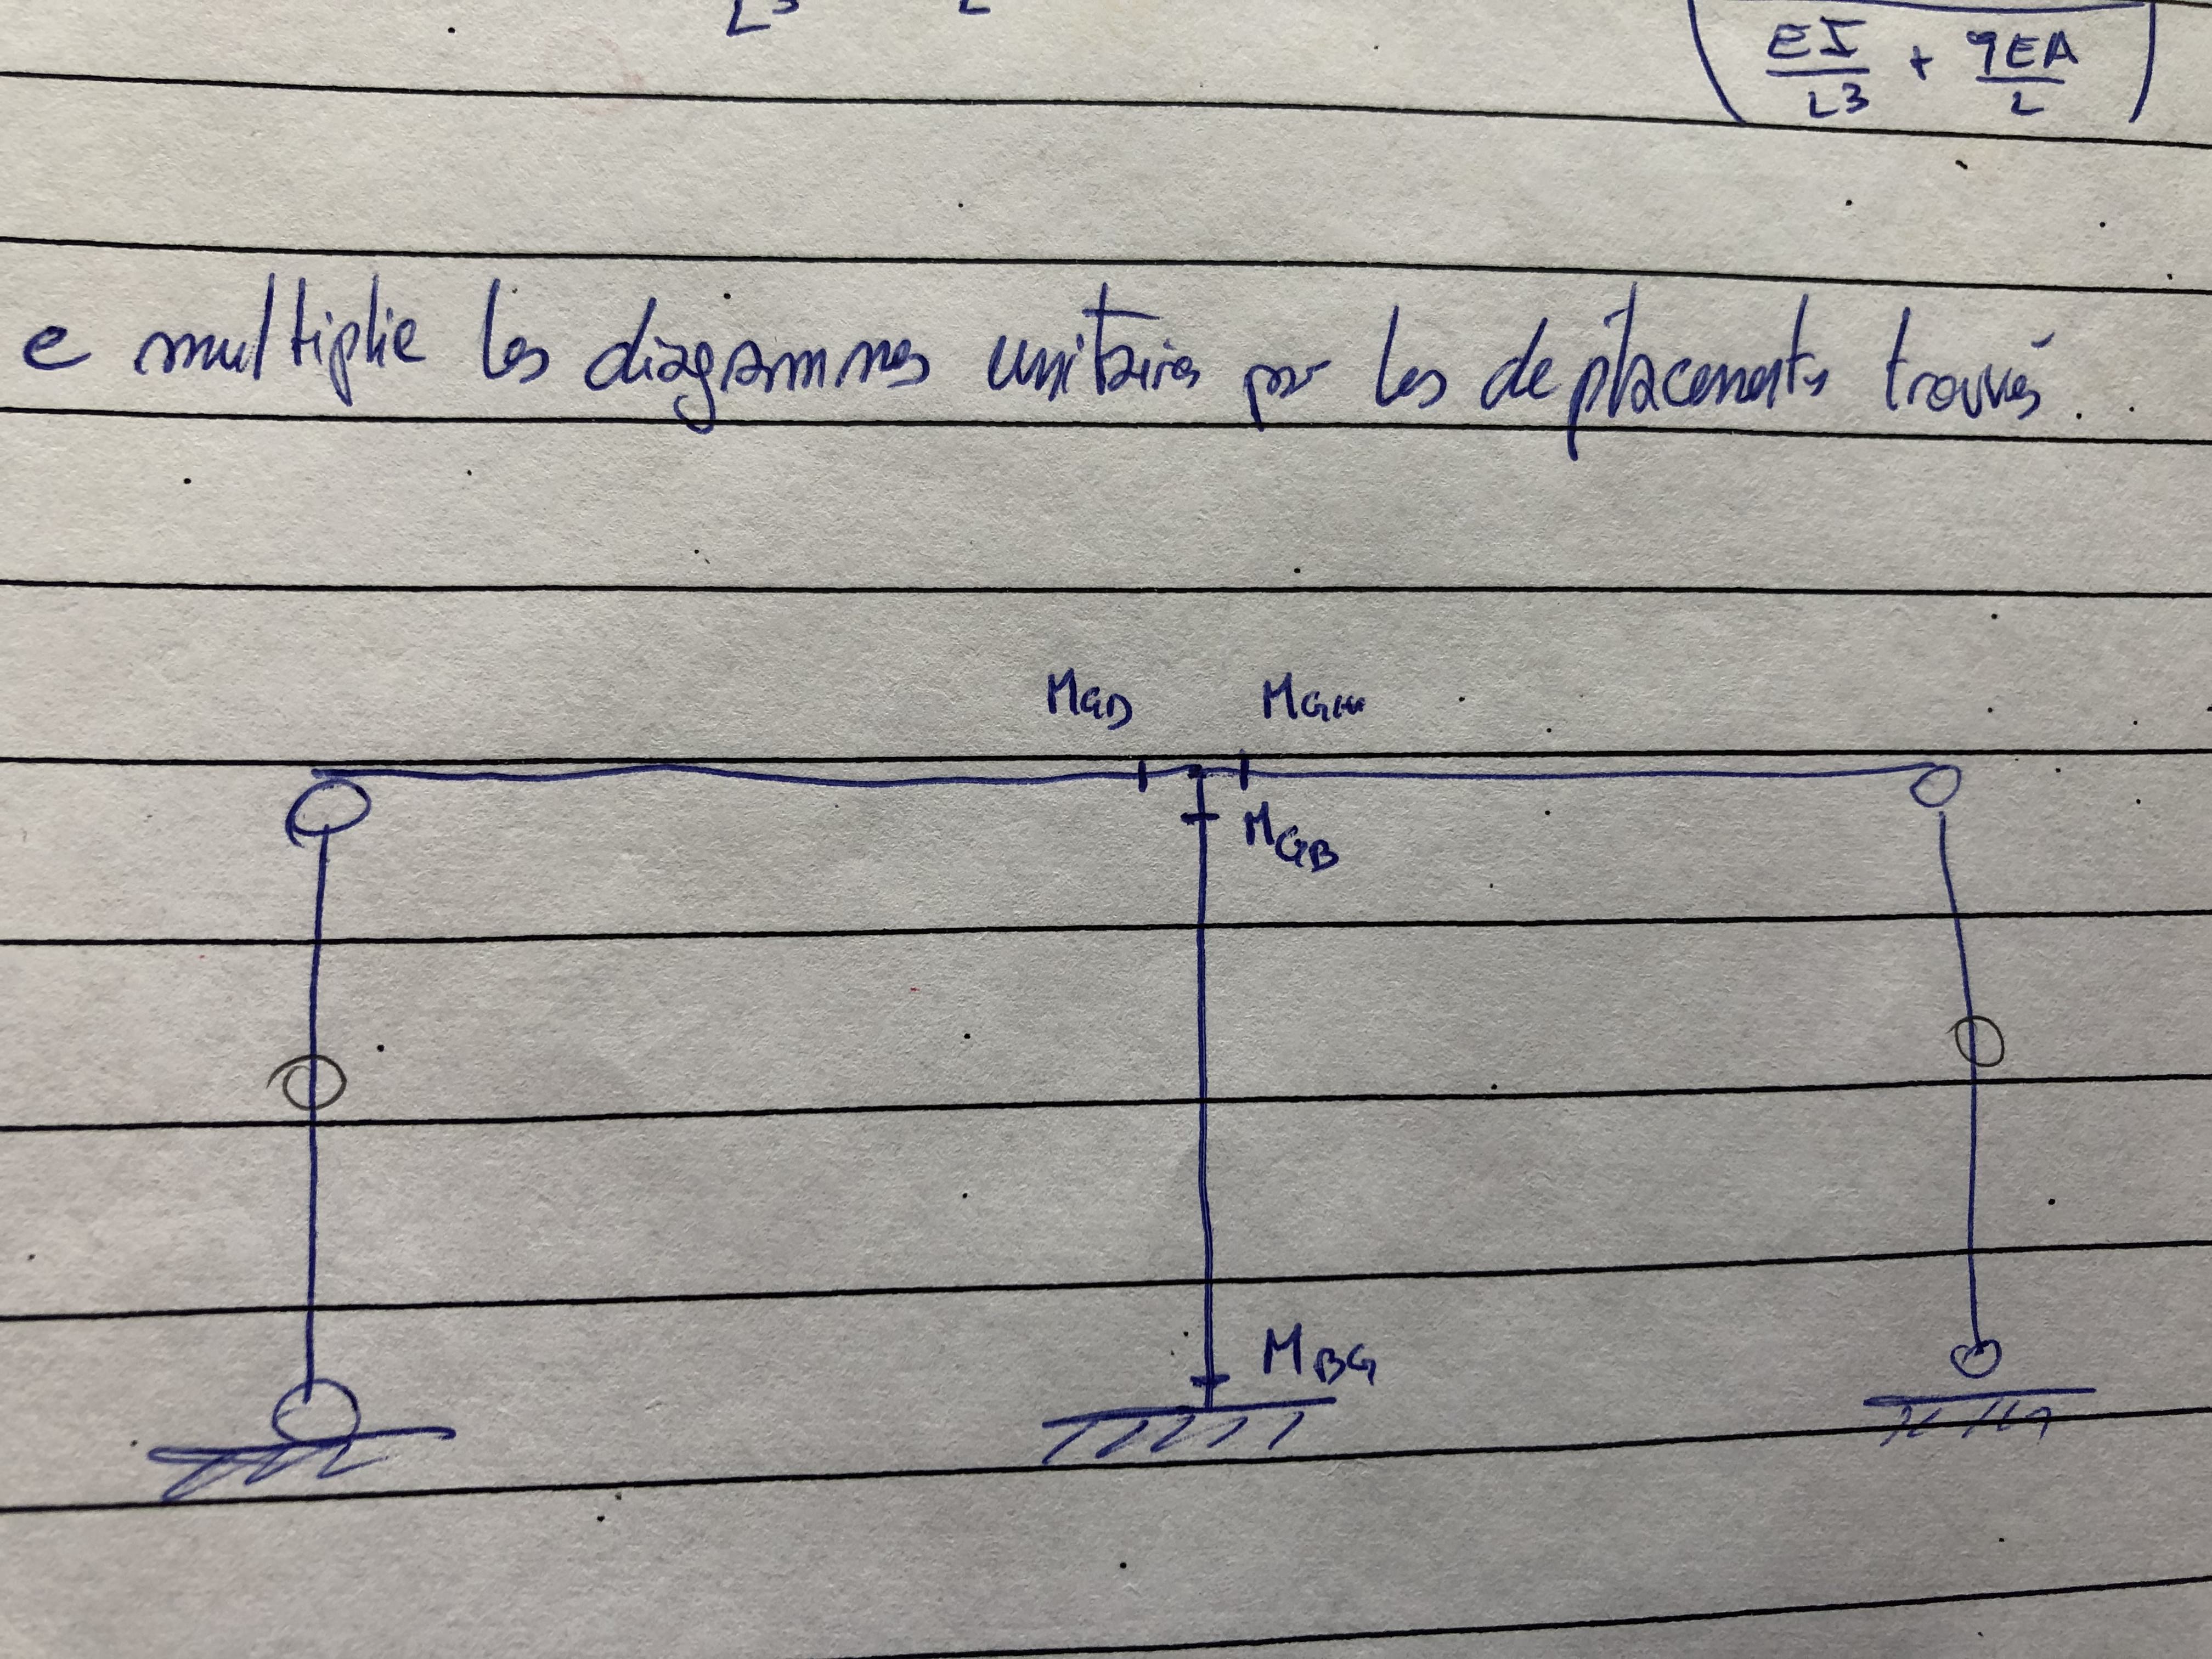 L3 L
EI/L3 + 9EA/L
e multiplie les diagrammes unitaires par les déplacements trouvés
MGD MGH
MGB
MBG